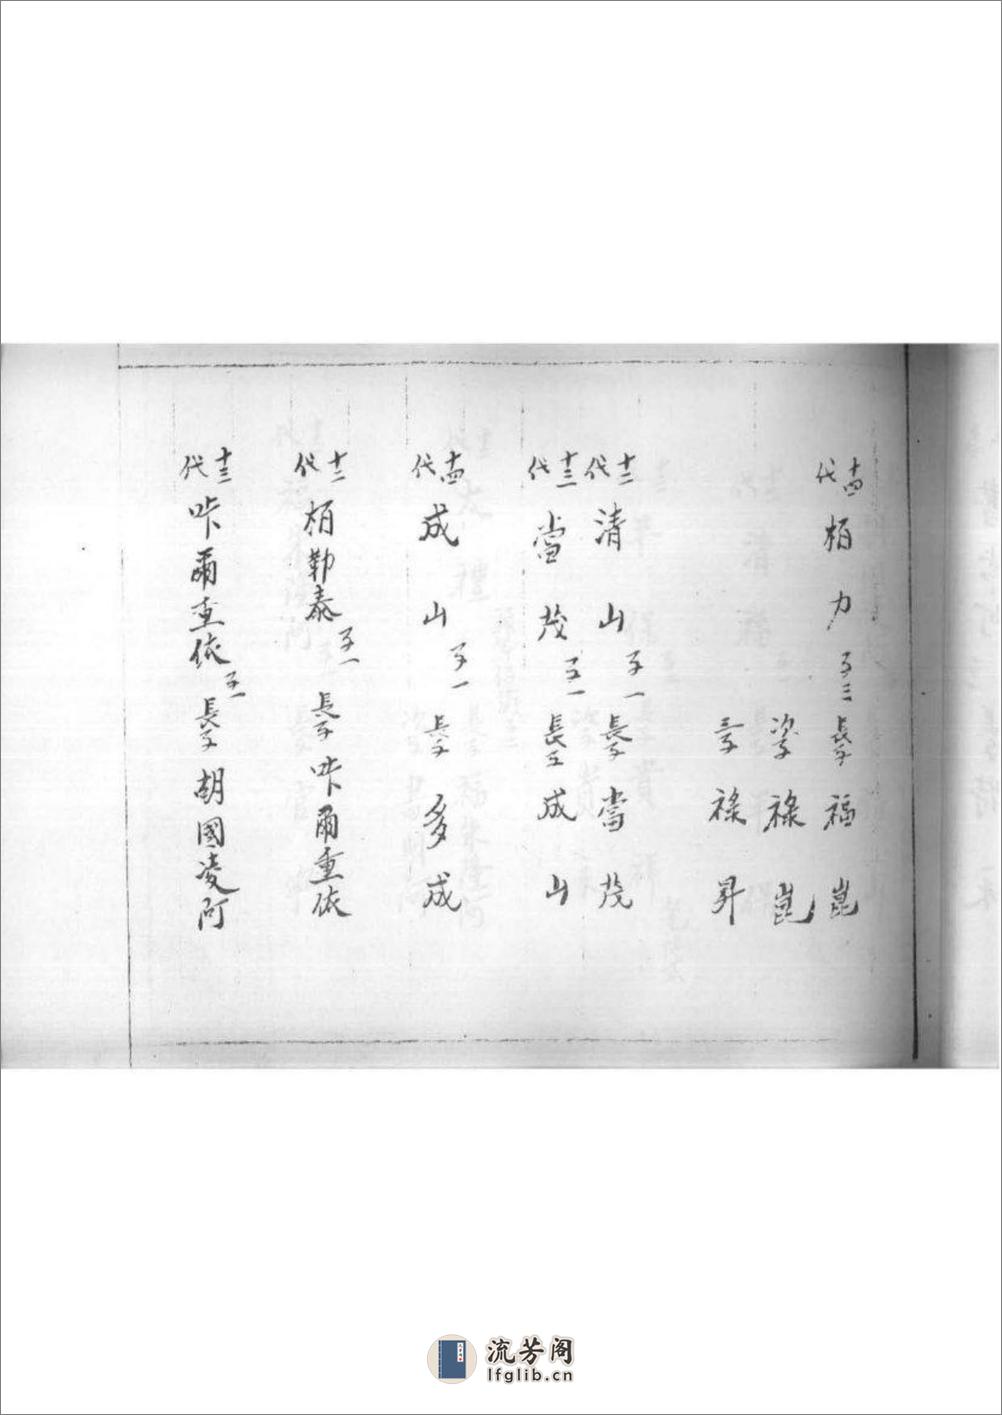 十四代 栢力 子三 長子 福崑
次子 祿崑
三子 祿昇
十二代 清山 子一 長子 當茂
十三代 當茂 子一 長子 成山
十四代 成山 子一 長子 多成
十二代 栢勒泰 子一 長子 咔爾重依
十三代 咔爾重依 子一 長子 胡國凌阿
流芳阁
lfglib.cn